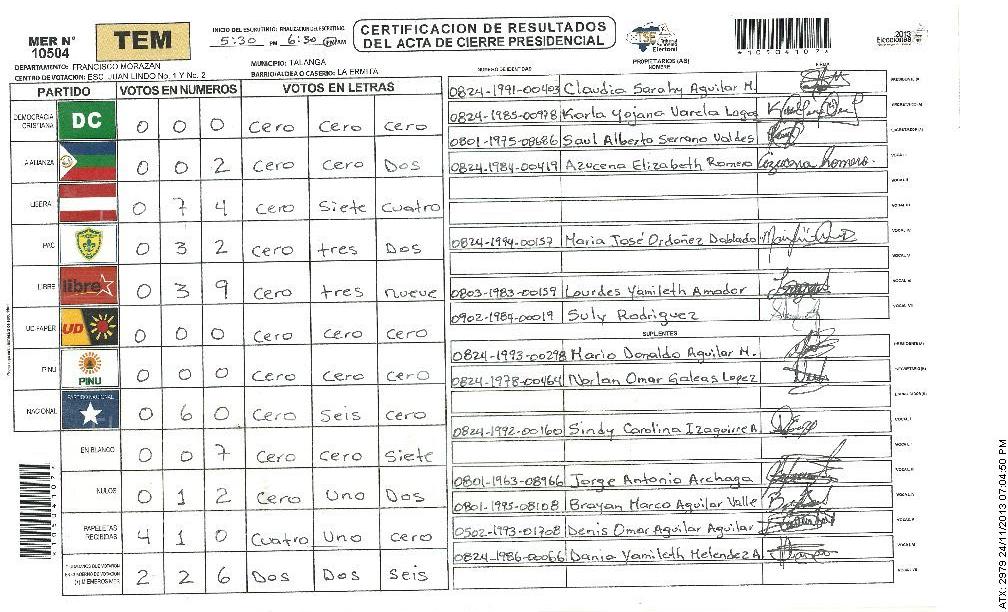 MER N° 10504
TEM
INICIO DEL ESCRUTINIO: FINALIZACION DEL ESCRUTINIO
5:30 PM 6:30 PM AM
CERTIFICACION DE RESULTADOS
DEL ACTA DE CIERRE PRESIDENCIAL
TSE
Electoral
*10504107*
2013
Elecciones
DEPARTAMENTO: FRANCISCO MORAZAN
MUNICIPIO: TALANGA
CENTRO DE VOTACION: ESC. JUAN LINDO No. 1 Y No. 2
BARRIO/ALDEA O CASERIO: LA ERMITA
PARTIDO VOTOS EN NUMEROS VOTOS EN LETRAS
DEMOCRACIA CRISTIANA DC 0 0 0 Cero Cero Cero
A.ALIANZA 0 0 2 Cero Cero Dos
LIBERA 0 7 4 Cero Siete Cuatro
PAC 0 3 2 Cero tres Dos
LIBRE libre 0 3 9 Cero tres nueve
UD-FAPER UD 0 0 0 Cero Cero Cero
PINU PINU 0 0 0 Cero Cero Cero
NACIONAL PARTIDO NACIONAL 0 6 0 Cero Seis Cero
EN BLANCO 0 0 7 Cero Cero Siete
NULOS 0 1 2 Cero Uno Dos
PAPELETAS RECIBIDAS 4 1 0 Cuatro Uno Cero
2 2 6 Dos Dos Seis
*10504107*
NUMERO DE IDENTIDAD PROPIETARIOS (AS) NOMBRE FIRMA
0824-1991-00403 Claudia Sarahy Aguilar M. PRESIDENTE (A)
0824-1985-00978 Karla Yojana Varela Lagos SECRETARIO (A)
0801-1975-08686 Saul Alberto Serrano Valdes ESCRUTADOR (A)
0824-1984-00419 Azucena Elizabeth Romero Azucena Romero. VOCAL I
VOCAL II
VOCAL III
0824-1994-00157 Maria José Ordoñez Doblado VOCAL IV
VOCAL V
0803-1983-00159 Lourdes Yamileth Amador VOCAL VI
0902-1984-00019 Suly Rodriguez VOCAL VII
SUPLENTES
0824-1993-00298 Mario Donaldo Aguilar M. PRESIDENTE (A)
0824-1978-00464 Norlan Omar Galeas Lopez SECRETARIO (A)
ESCRUTADOR (A)
0824-1992-00160 Sindy Carolina Izaguirre A. VOCAL I
VOCAL II
0801-1963-08966 Jorge Antonio Archaga VOCAL III
0801-1995-08108 Brayan Marco Aguilar Valle VOCAL IV
0502-1993-01708 Denis Omar Aguilar Aguilar VOCAL V
0824-1986-00066 Dania Yamileth Melendez A. VOCAL VI
VOCAL VII
ATX: 2979 24/11/2013 07:04:50 PM